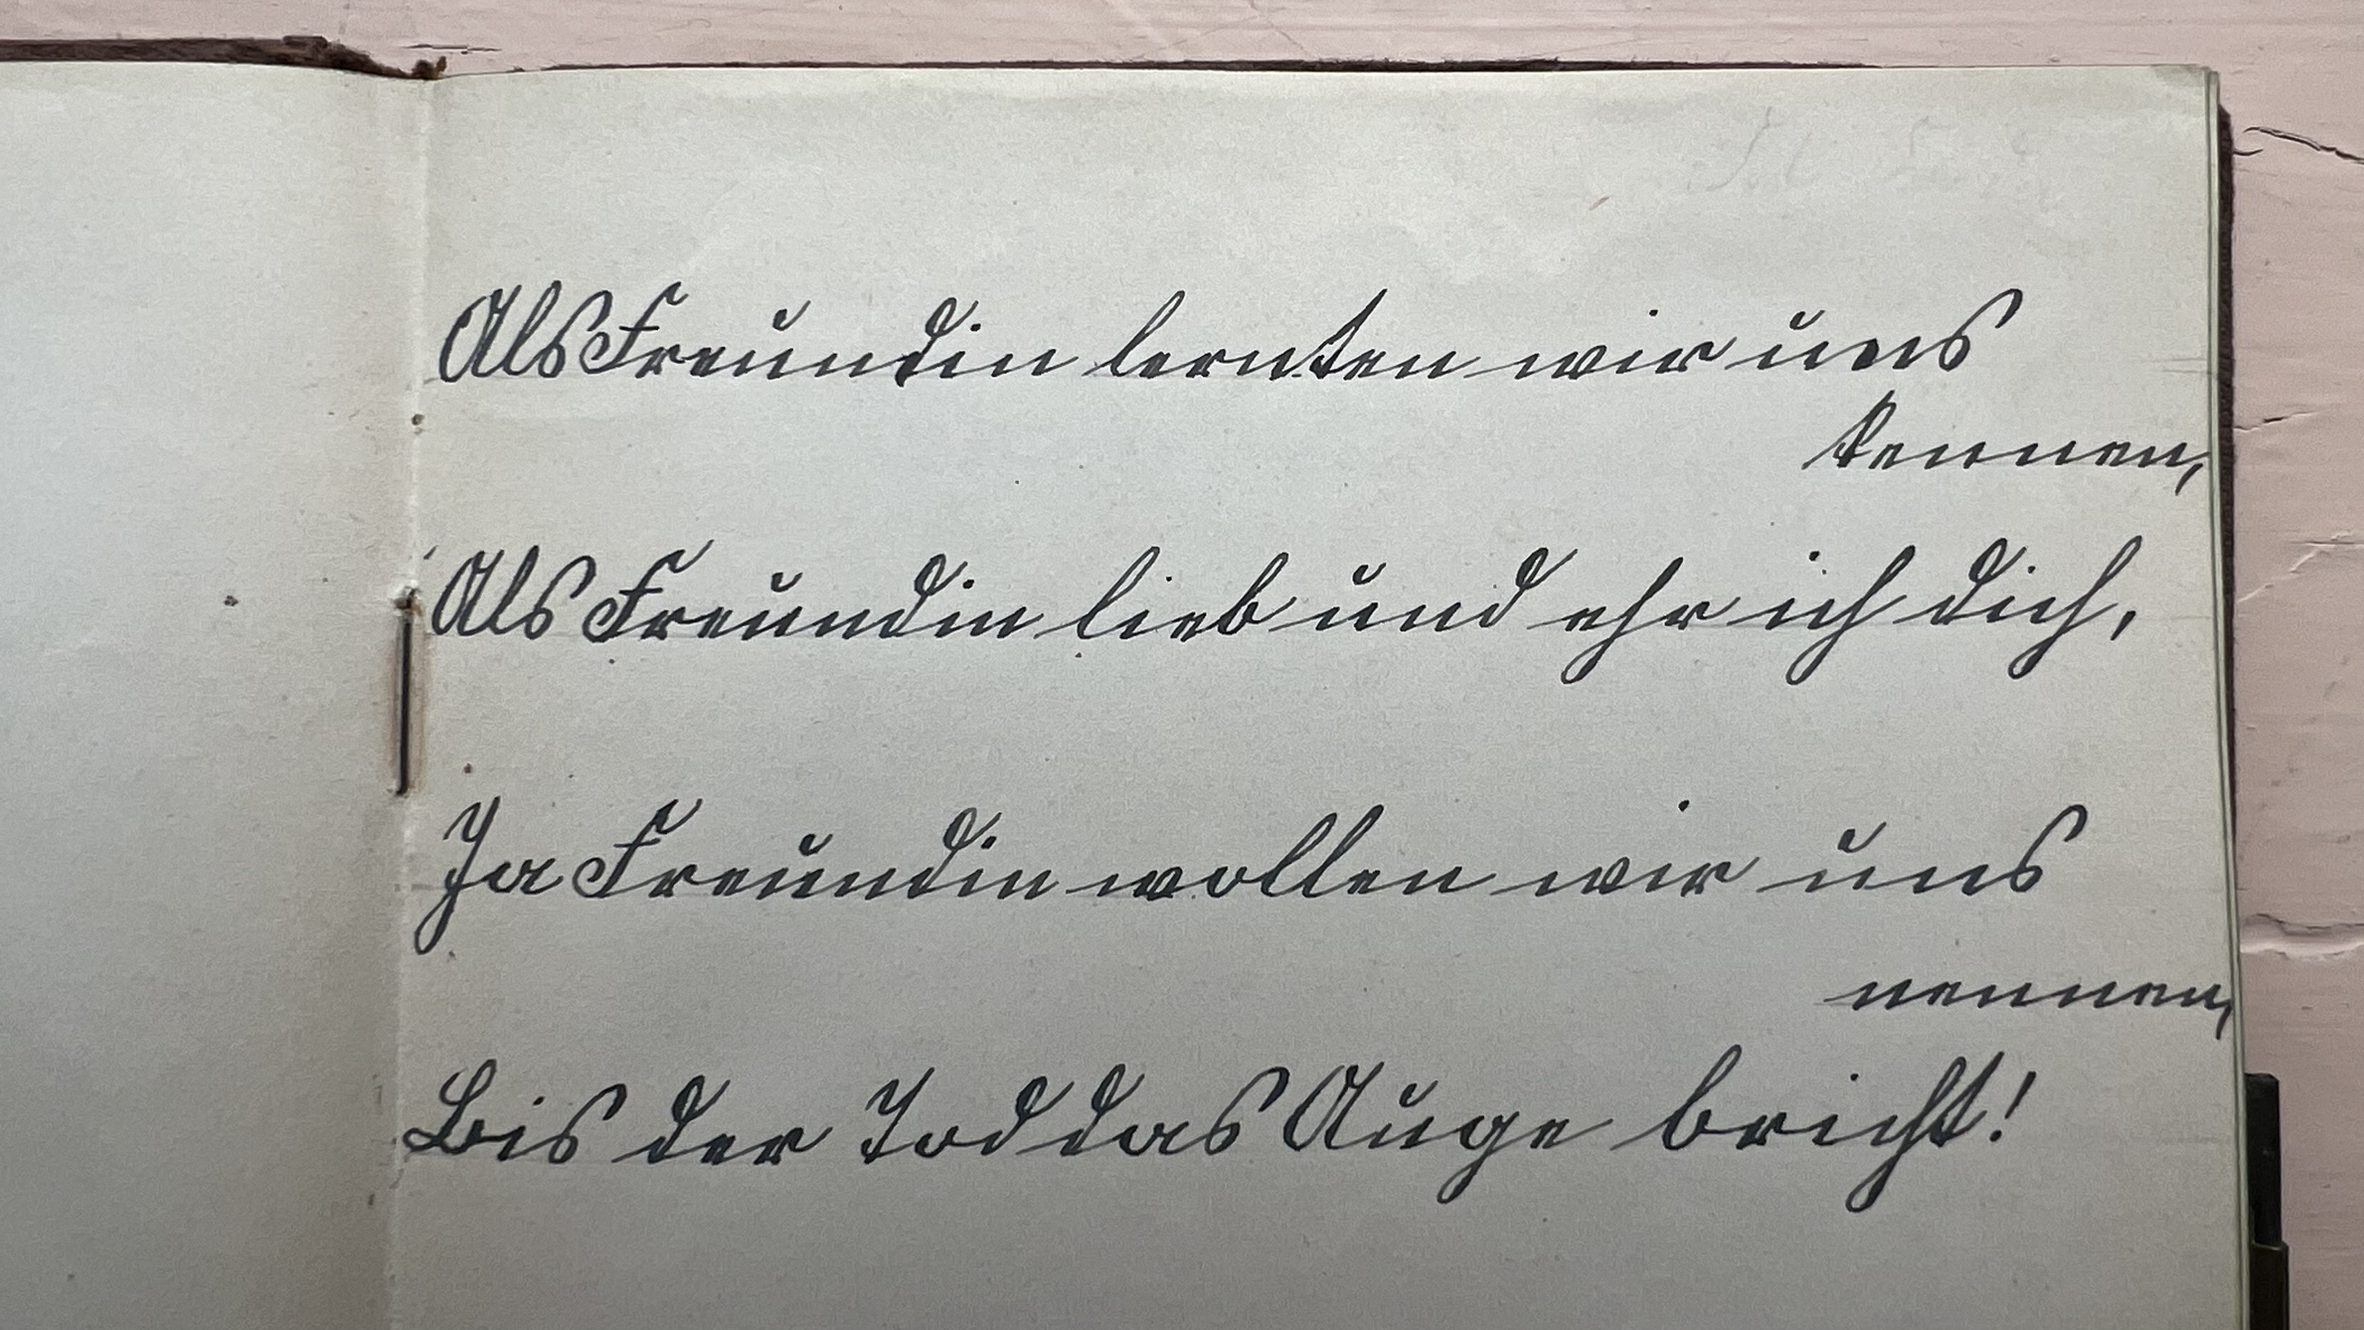 Als Freundin lernten wir uns
kennen,
Als Freundin lieb und ehr ich dich,
Ja Freundin wollen wir uns
nennen,
Bis der Tod das Auge bricht!